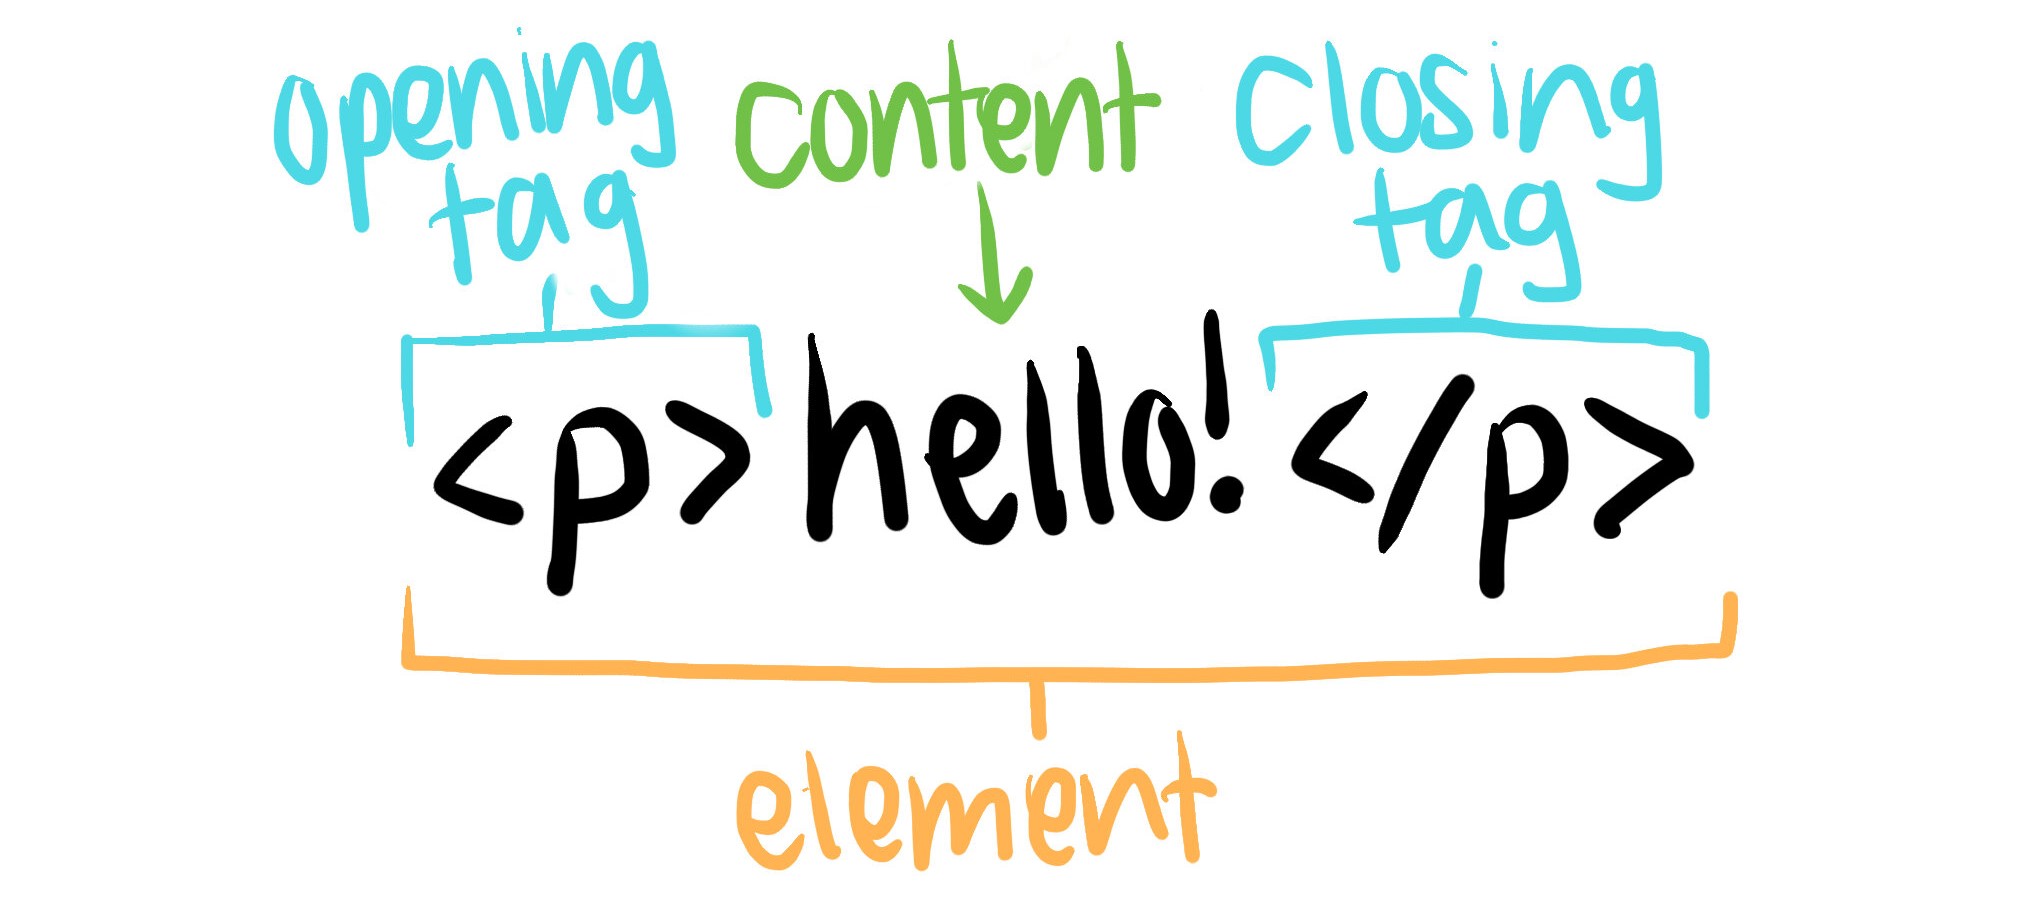 opening
tag
content
closing
tag
<p>hello!</p>
element